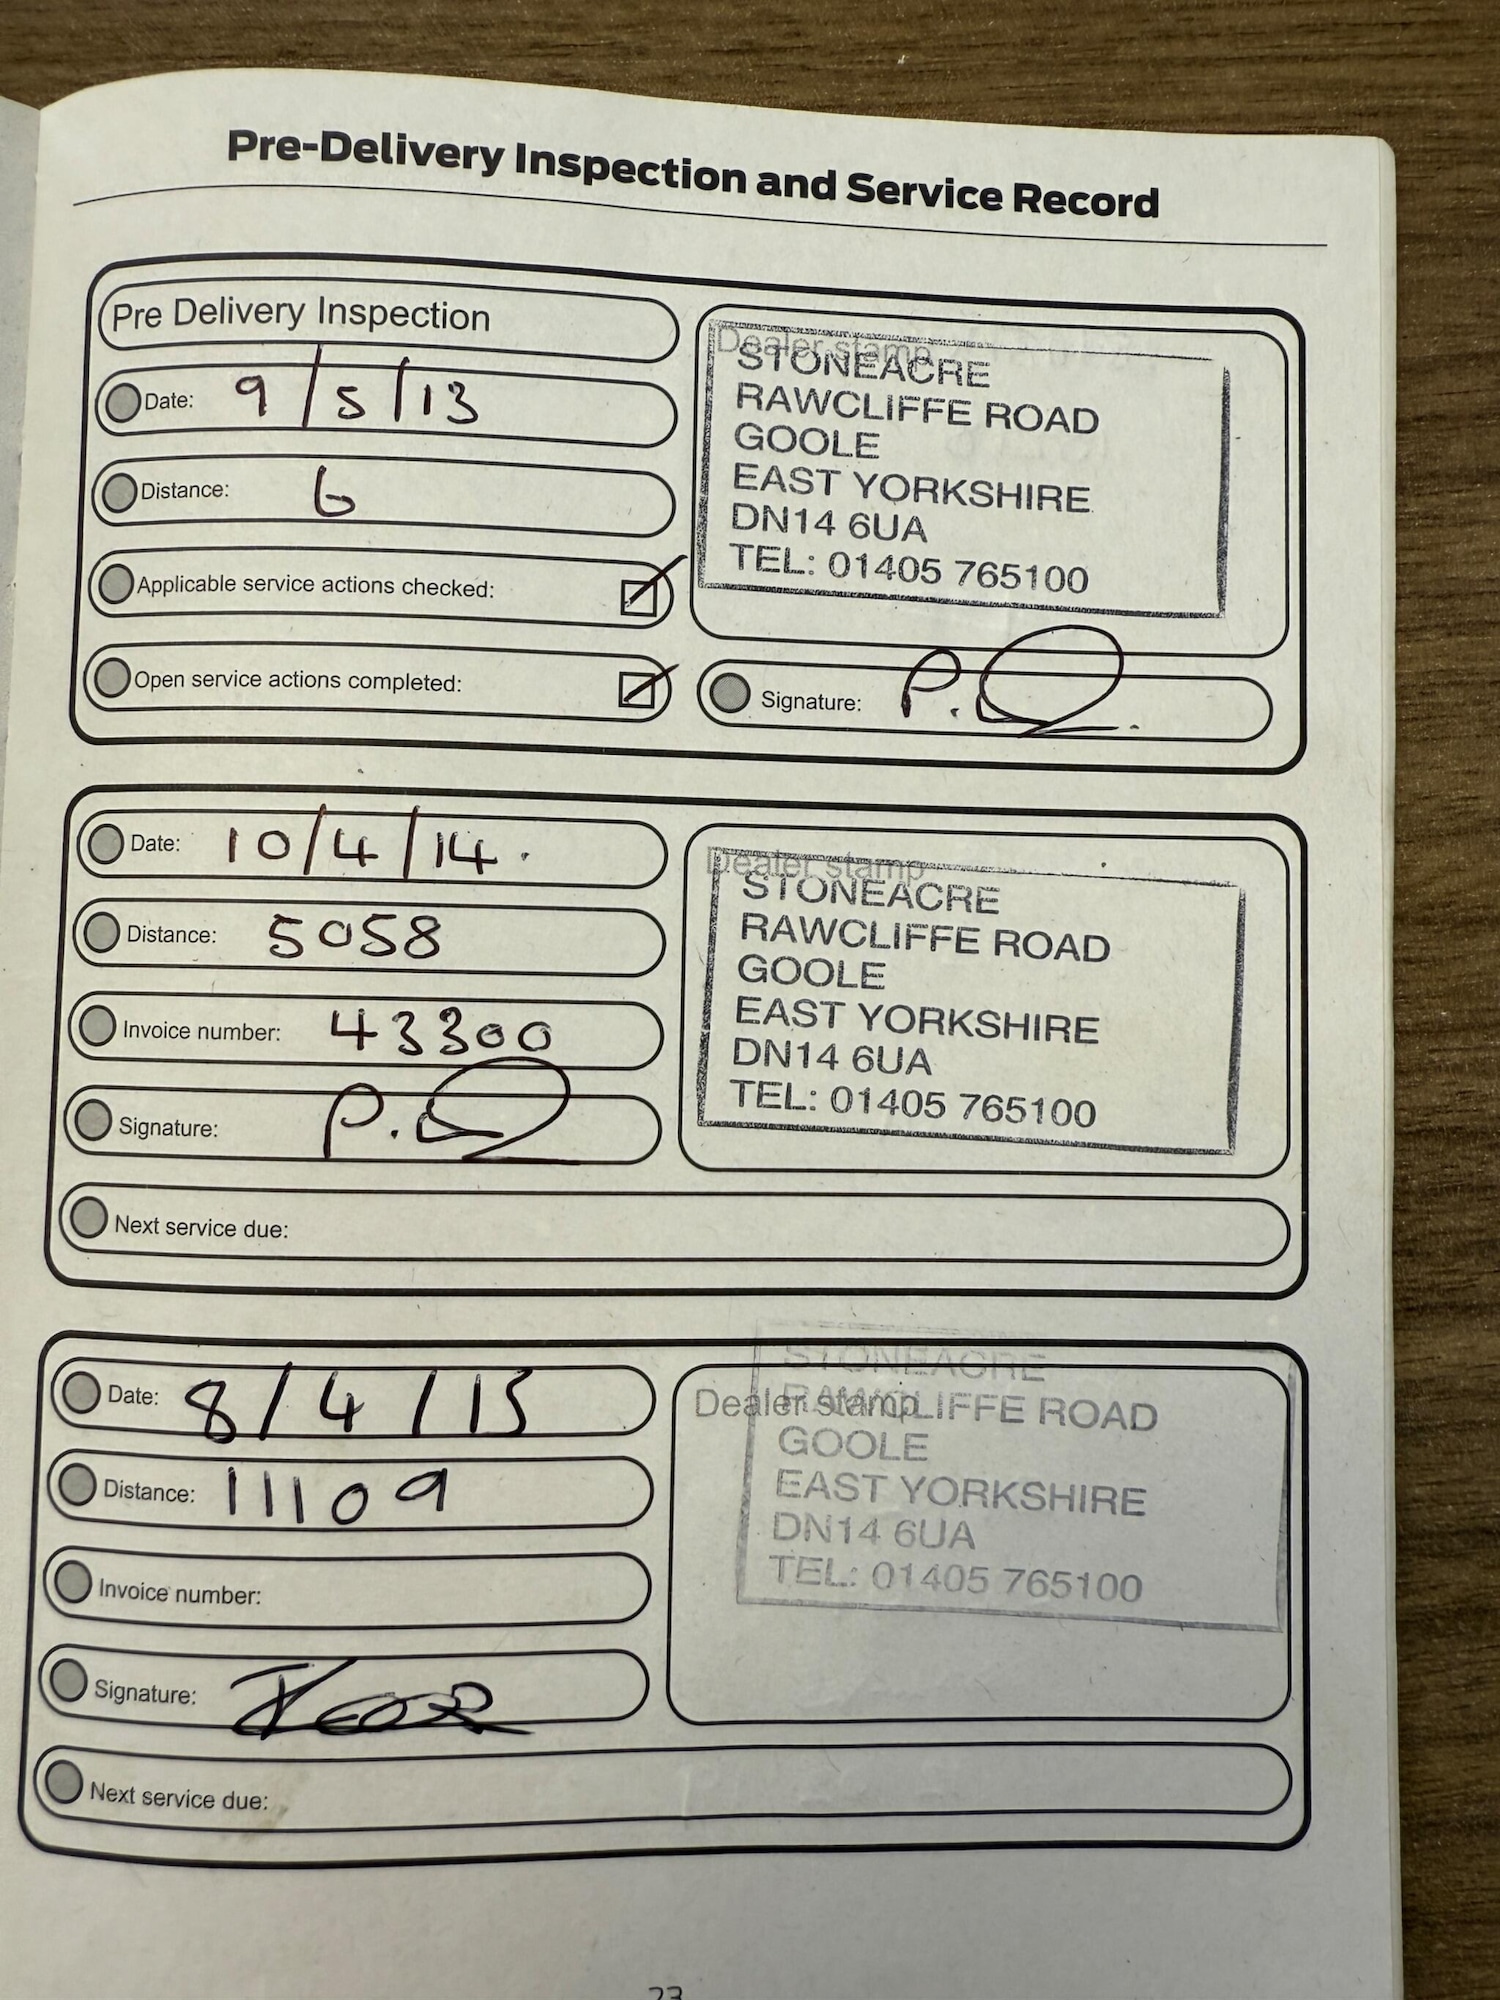 Pre-Delivery Inspection and Service Record
Pre Delivery Inspection
Date: 9/5/13
Distance: 6
Applicable service actions checked:
Open service actions completed:
Dealer stamp
STONEACRE
RAWCLIFFE ROAD
GOOLE
EAST YORKSHIRE
DN14 6UA
TEL: 01405 765100
Signature:
Date: 10/4/14.
Distance: 5058
Invoice number: 43300
Signature:
Next service due:
Dealer stamp
STONEACRE
RAWCLIFFE ROAD
GOOLE
EAST YORKSHIRE
DN14 6UA
TEL: 01405 765100
Date: 8/4/15
Distance: 11109
Invoice number:
Signature:
Next service due:
Dealer stamp
STONEACRE
RAWCLIFFE ROAD
GOOLE
EAST YORKSHIRE
DN14 6UA
TEL: 01405 765100
23